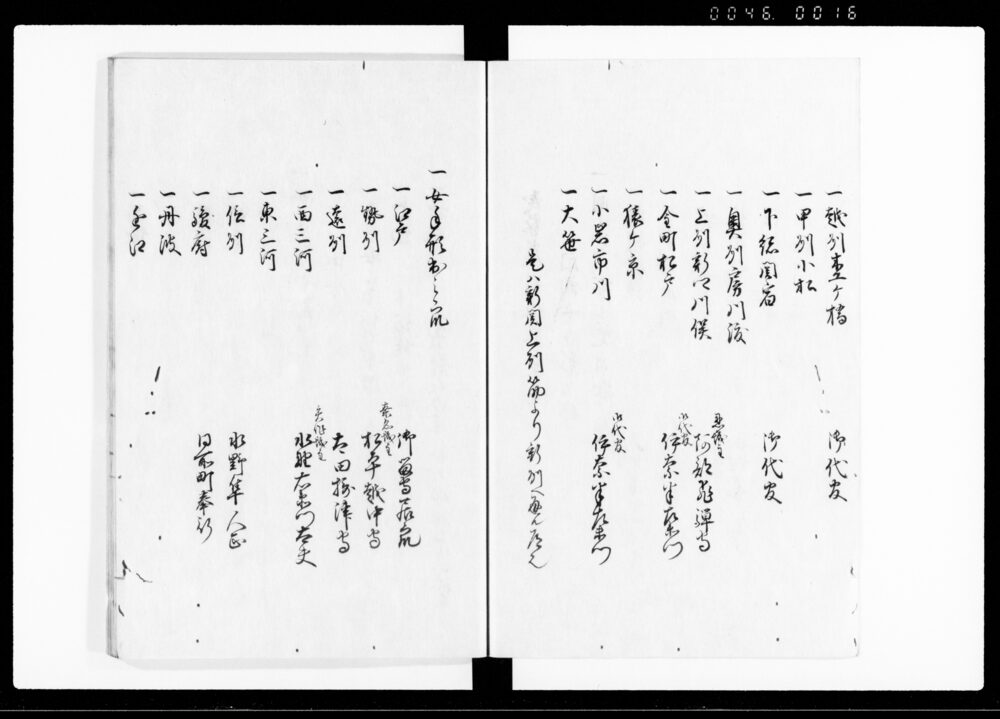 0046. 0016
一越州 ケ橋 御代官
一甲州小松
一下総関宿 御代官
一奥州房川渡
一上州新 川俣 忍城主 阿部飛騨守
一金町松戸 御代官 伊奈半左衛門
一猿ケ京
一小岩市川 御代官 伊奈半左衛門
一大笹
是ハ新関上州筋より
一女手形出ス所
一江戸 御留守居
一勢州 桑名城主 松平越中守
一遠州 太田摂津守
一西三河 城主 水野右衛門大夫
一東三河
一信州 水野隼人正
一駿府 同所町奉行
一丹波
一近江